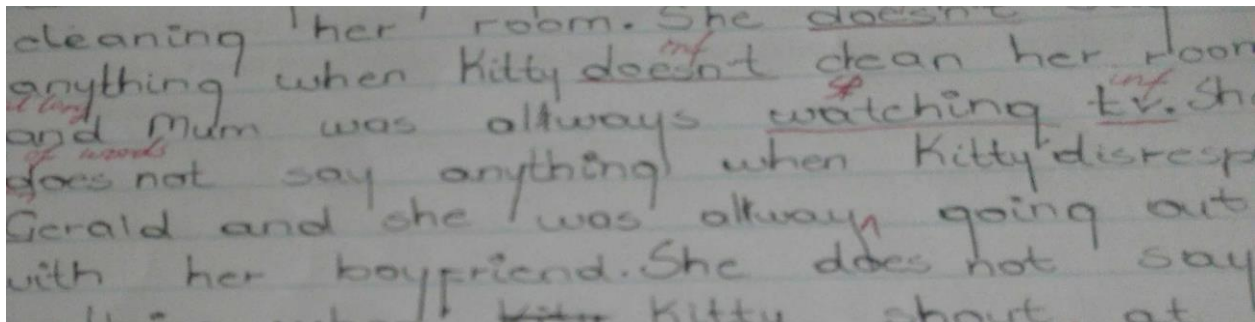 cleaning her room. She doesn't
anything when Kitty doesn't clean her room
and Mum was allways watching tv. She
does not say anything when Kitty disresp
Gerald and she was allway going out
with her boyfriend. She does not say
Kitty shout at